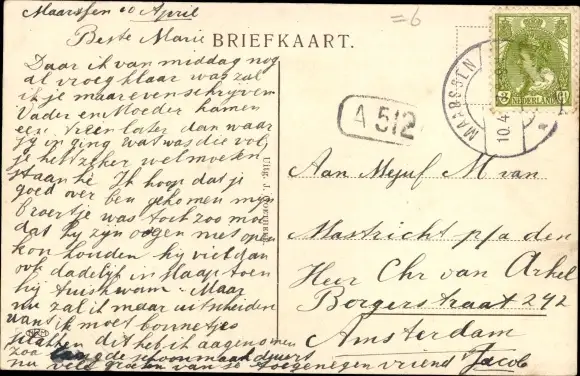 Maarssen 10 April
=6
Beste Marie
BRIEFKAART.
Daar ik van middag nog
al vroeg klaar was zal
ik je maar even schrijven
Vader en Moeder kamen
een trein later dan waar
jy in ging wat was die vol,
je heb zeker wel moeten
staan hè. Ik hoop dat je
goed over ben gekomen myn
broertje was toch zoo moe
dat hy zyn oogen niet open
kon houden hy viel dan
ook dadelyk in slaap toen
hij tuiskwam. Maar
nu zal ik maar uitscheiden
want ik moet
plakken dit heb ik aangenomen
zoo lang de schoonmaak duurt
nu veel groeten van je toegenegen vriend Jacob
Uitg. J.
A 512
MAARSSEN
10.4
NEDERLAND
Aan Mejuf M van
Mastricht p/a den
Heer Chr van Arkel
Borgerstraat 242
Amsterdam